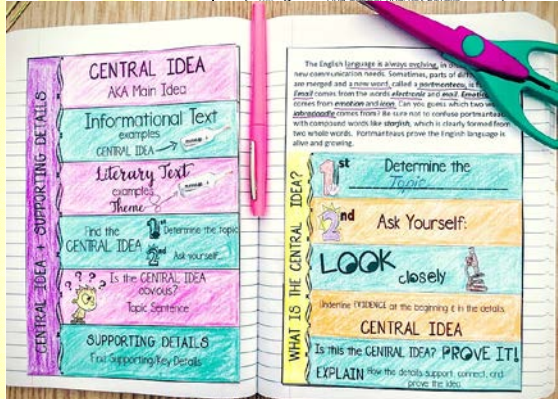 CENTRAL IDEA + SUPPORTING DETAILS
CENTRAL IDEA
AKA Main Idea
Informational Text
examples
CENTRAL IDEA
Literary Text
examples
Theme
Find the
CENTRAL IDEA
1st Determine the topic
2nd Ask yourself...
? ? ? ?
Is the CENTRAL IDEA
obvious?
Topic Sentence
SUPPORTING DETAILS
Find Supporting/Key Details
The English language is always evolving, in
new communication needs. Sometimes, parts of
are merged and a new word, called a portmanteau, is
Email comes from the words electronic and mail.
comes from emotion and icon. Can you guess which two
labradoodle comes from? Be sure not to confuse
with compound words like starfish, which is clearly formed from
two whole words. Portmanteaus prove the English language is
alive and growing.
WHAT IS THE CENTRAL IDEA?
1st Determine the
Topic
2nd Ask Yourself:
LOOK closely
Underline EVIDENCE at the beginning & in the details.
CENTRAL IDEA
Is this the CENTRAL IDEA? PROVE IT!
EXPLAIN How the details support, connect, and
prove the idea